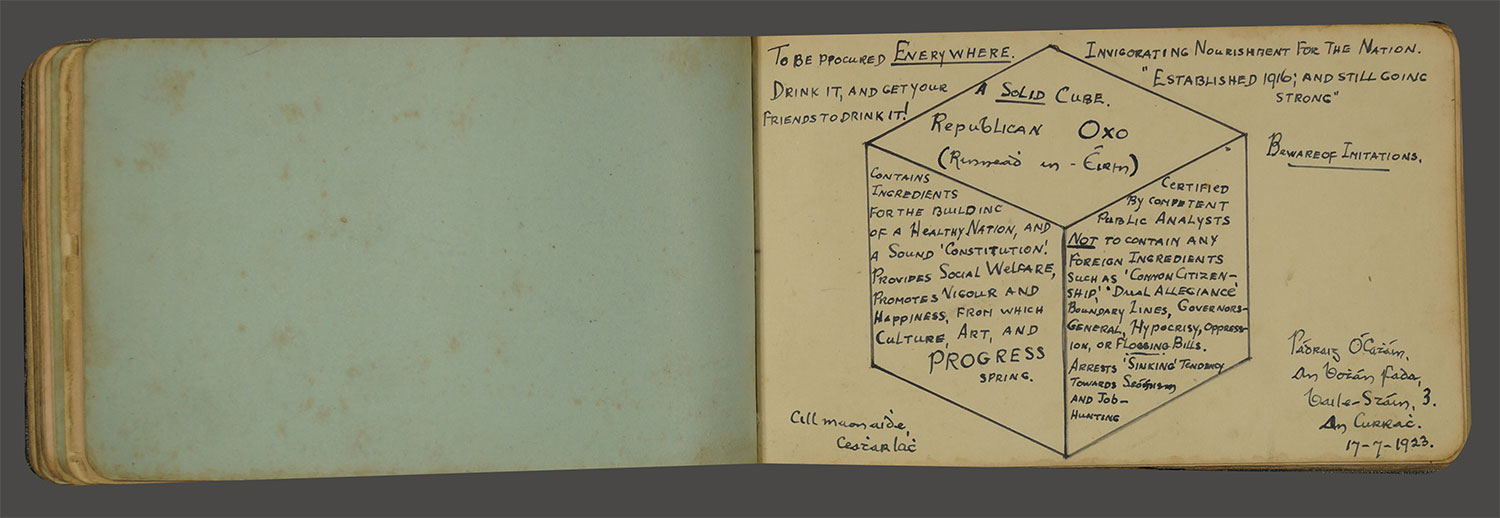 TO BE PROCURED EVERYWHERE.
DRINK IT, AND GET YOUR
FRIENDS TO DRINK IT!
INVIGORATING NOURISHMENT FOR THE NATION.
"ESTABLISHED 1916; AND STILL GOING
STRONG"
BEWARE OF IMITATIONS.
A SOLID CUBE.
REPUBLICAN OXO
(Rinneaḋ in-Éirin)
CONTAINS
INGREDIENTS
FOR THE BUILDING
OF A HEALTHY NATION, AND
A SOUND 'CONSTITUTION'.
PROVIDES SOCIAL WELFARE,
PROMOTES VIGOUR AND
HAPPINESS, FROM WHICH
CULTURE, ART, AND
PROGRESS
SPRING.
CERTIFIED
BY COMPETENT
PUBLIC ANALYSTS
NOT TO CONTAIN ANY
FOREIGN INGREDIENTS
SUCH AS 'COMMON CITIZEN-
SHIP,' 'DUAL ALLEGIANCE'
BOUNDARY LINES, GOVERNORS-
GENERAL, HYPOCRISY, OPPRESS-
ION, OR FLOGGING BILLS.
ARRESTS 'SINKING' TENDENCY
TOWARDS SEÓINISM
AND JOB-
HUNTING
Cill maonaiḋe,
Ceaṫarlaċ
Pádraig Ó'Caṫáin.
An Boṫán Fada,
Baile-Stáin, 3.
An Curraċ.
17-7-1923.